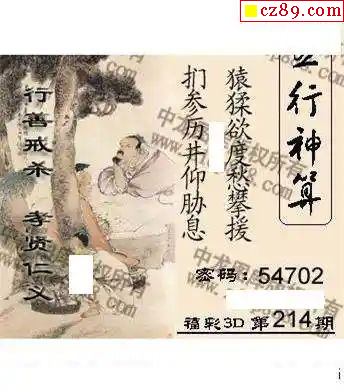 cz89.com
五行神算
猿猱欲度愁攀援
扪参历井仰胁息
行善戒杀 孝贤仁义
密码：54702
福彩3D 第214期